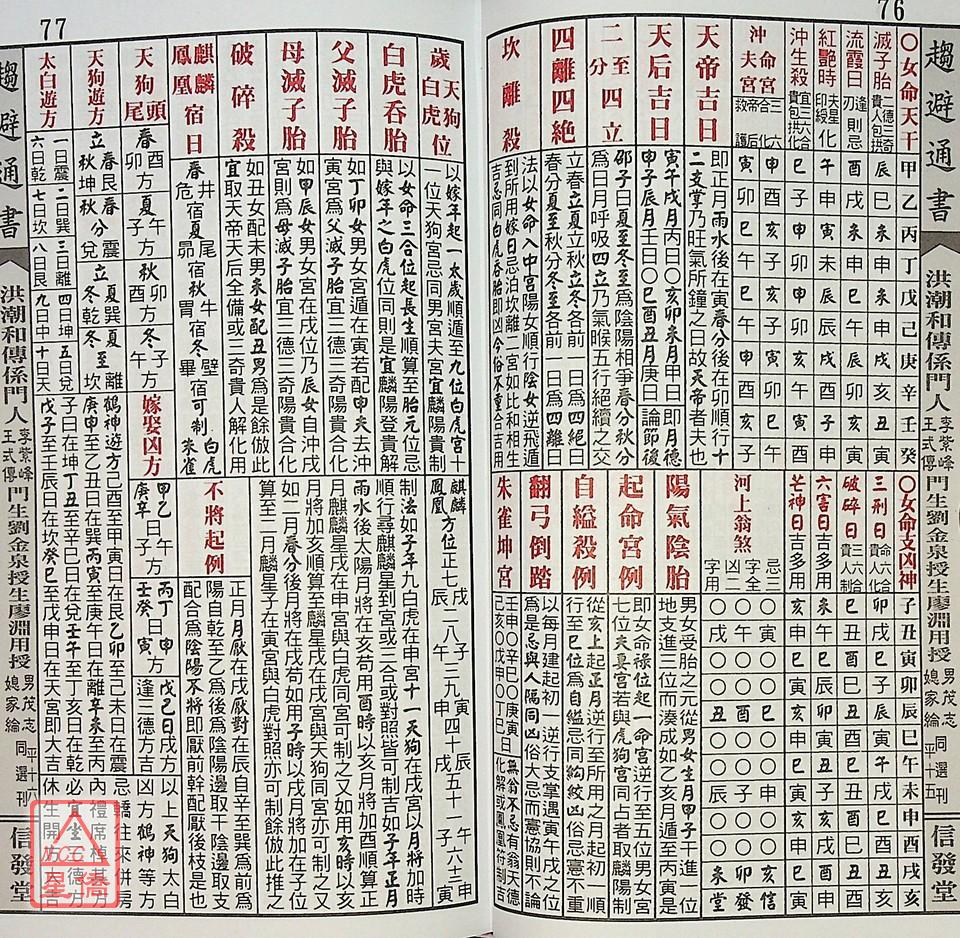 76
趨避通書
洪潮和傳係門人李紫峰王式傳門生劉金泉授生廖淵用授男茂志媳家綸同選刊 平十五
信發堂
○女命天干 甲乙丙丁戊己庚辛壬癸
滅子胎 二德三奇貴人包拱 辰巳未申未申戌亥丑寅
流霞日 逢刃則忌 酉戌未申巳午辰卯亥寅
紅艷時 夫星印綬化 午申寅未辰辰戌酉子申
沖生殺 三六合宜貴包拱化 巳子申卯申卯亥午寅酉
沖命宮 三合六化 申酉亥子亥子寅卯巳午
沖夫宮 帝后救護 寅卯巳午巳午申酉亥子
天帝吉日
即正月雨水後在寅春分後在卯順行十
二支掌乃旺氣所鐘之日故天帝者夫也
天后吉日
寅午戌月丙日○亥卯未月甲日 即月德
申子辰月壬日○巳酉丑月庚日 論節後
二至四立分
邵子曰夏至冬至爲陰陽相爭春分秋分
爲日月呼吸四立乃氣候五行絕續之交
四離四絕
立春立夏立秋立冬各前一日爲四絕日
春分夏至秋分冬至各前一日爲四離日
坎離殺
法以女命入中宮陽女順行陰女逆飛遁
到所用嫁日忌泊坎離二宮如比和相生
吉忌同白虎吞胎即凶今俗不重合吉用
○女命支凶神 子丑寅卯辰巳午未申酉戌亥
三刑日 三六合貴人化 卯戌巳子辰申午丑寅酉未亥
破碎日 三六合貴人制 巳丑酉巳丑酉巳丑酉巳丑酉
六害日 吉多用 未午巳辰卯寅丑子亥戌酉申
芒神日 吉多用 亥申巳寅亥申巳寅亥申巳寅
河上翁煞
忌三字全凶二字用
陽氣陰胎
男女受胎之元從男女生月甲子干進一位
地支進三位而湊成如乙亥月遁至丙寅是
起命宮例
即女命祿位起一命宮逆行至五位男女宮
七位夫宮若與虎狗宮同占者取麟陽制
自縊殺例
從亥上起正月逆行至所用之月起初一順
行至巳位爲自縊忌同絞凶俗忌憲不重
翻弓倒踏
以每月建起初一逆行支掌遇寅午戌之位
爲是忌與人隔同凶俗大忌而憲協則不論
朱雀坤宮
壬申○辛巳○庚寅○
己亥○戊申○丁巳
77
歲天狗白虎位
以嫁年起一太歲順遁至九位白虎宮十
一位天狗宮忌同男宮夫宮宜麟陽貴制
白虎吞胎
以女命三合位起長生順算至胎元位忌
與嫁年之白虎位同則是宜麟陽登貴解
父滅子胎
如丁卯女男女宮遁在寅若配申夫去沖
寅宮爲父滅子胎宜三德三奇陽貴合化
母滅子胎
如甲辰女男女宮在戌位乃辰女自沖戌
宮則爲母滅子胎宜三德三奇陽貴合化
破碎殺
如丑女配未男未女配丑男爲是餘倣此
宜取天帝天后全備或三奇貴人解化用
麒麟鳳凰宿日
春井危宿夏尾昴宿秋牛胃宿冬壁畢宿可制白虎朱雀
天狗頭尾
春酉卯方夏午子方秋卯酉方冬子午方
天狗遊方
立春艮春分震立夏巽夏至離
立秋坤秋分兌立冬乾冬至坎
太白遊方
一日震二日巽三日離四日坤五日兌
六日乾七日坎八日艮九日中十日天
麒麟鳳凰方位正七戌辰二八子午三九寅申四十辰戌五十一午子六十二申寅
制法如子年九白虎在申宮十一天狗在戌宮以月將加時
順行尋麒麟星戌到宮或三合或對照皆可制吉如子年正月
雨水後太陽月將在亥苟用酉時以亥月將加酉順算正
月麒麟星戌在申宮與白虎同宮可制之又如用亥時以亥
月將加亥順算至麟星戌在戌宮與天狗同宮亦可制之又
如二月春分後月將在戌苟如用子時以戌月將加在子位
算至二月麟星子在寅宮與白虎對照亦可制餘倣此推之
不將起例
正月月厭在戌厭對在辰自辛至巽爲前爲
陽自乾至乙爲後爲陰陽邊取干陰邊取支
配合爲爲陰陽不將即厭前幹配厭後枝是也
嫁娶凶方
甲乙日申方丙丁日子方戊己日戌方
庚辛日午方壬癸日寅方逢三德方吉
鶴神遊方己酉至甲寅日在艮乙卯至己未日在震
庚申至乙丑日在巽丙寅至庚午日在離辛未至丙
子日在坤丁丑至辛巳日在兌壬午至丁亥日在乾
戊子至壬辰日在坎癸巳至戊申日在天宮即大吉
以上天狗太白
凶方鶴神等方
忌轎往來併房
內禮席
必宜坐三德方
休生開方大吉
趨避通書
洪潮和傳係門人李紫峰王式傳門生劉金泉授生廖淵用授男茂志媳家綸同選刊 平十六
信發堂
星僑